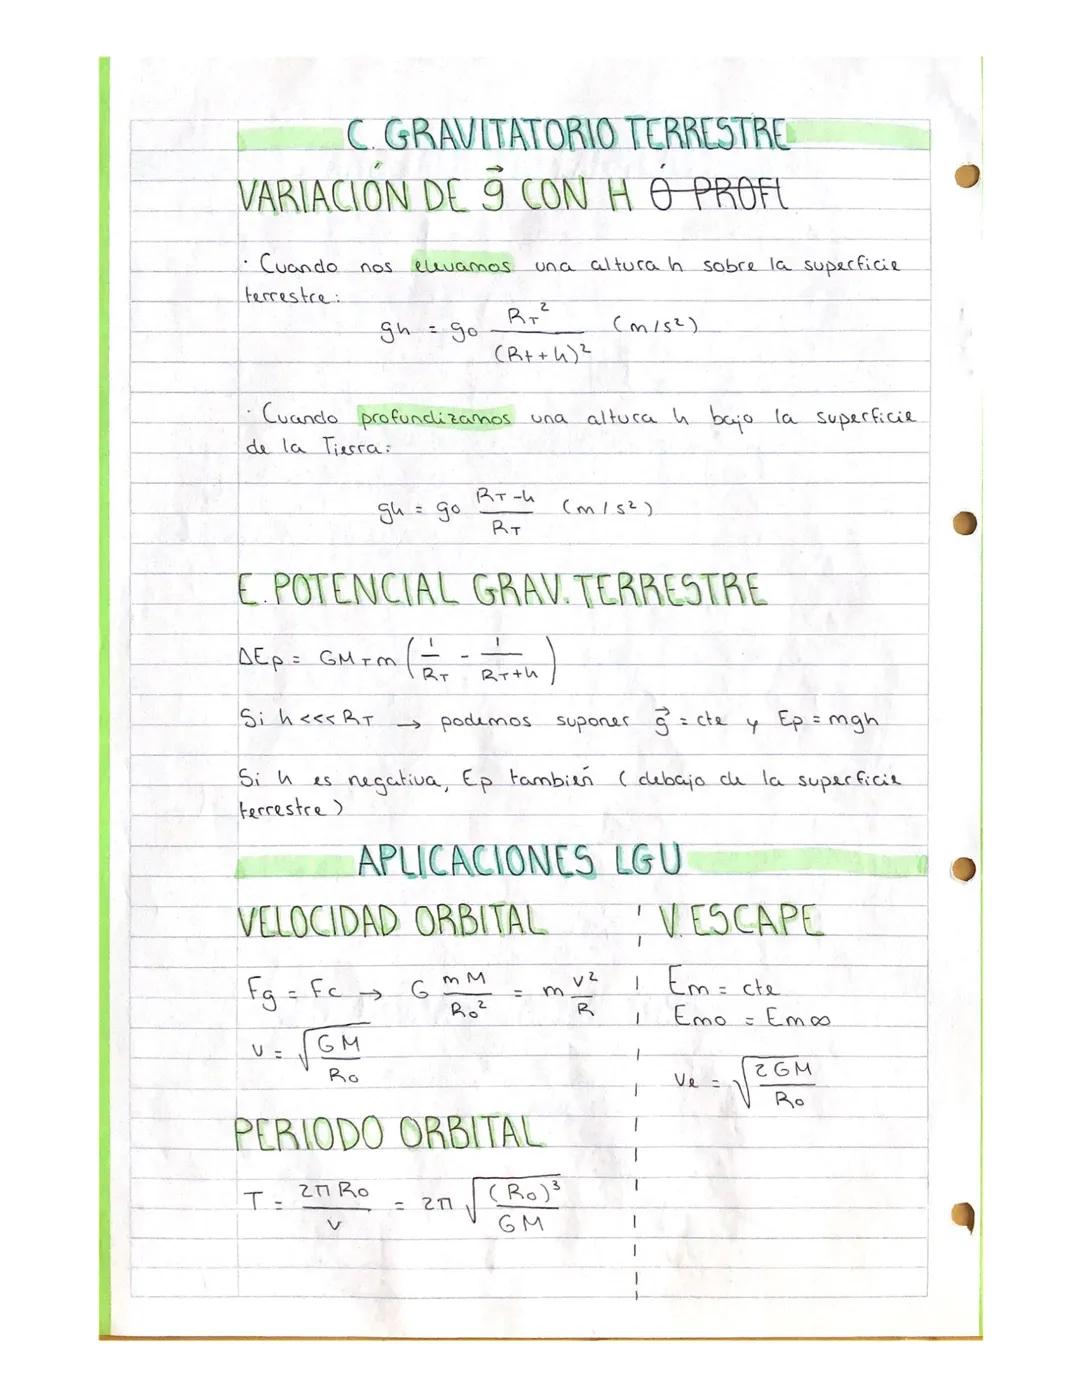 C. GRAVITATORIO TERRESTRE
VARIACIÓN DE g⃗ CON H Ó PROF
· Cuando nos elevamos una altura h sobre la superficie
terrestre:
gh = g₀ R_T² / (Rt + h)² (m/s²)
· Cuando profundizamos una altura h bajo la superficie
de la Tierra:
gh = g₀ (R_T - h) / R_T (m/s²)
E. POTENCIAL GRAV. TERRESTRE
ΔEp = GM_T m (1/R_T - 1/(R_T + h))
Si h <<< R_T → podemos suponer g⃗ = cte y Ep = mgh
Si h es negativa, Ep también (debajo de la superficie
terrestre)
APLICACIONES LGU
VELOCIDAD ORBITAL
Fg = Fc → G mM/R₀² = m v²/R
v = √(GM/R₀)
PERIODO ORBITAL
T = 2π R₀/v = 2π √((R₀)³/GM)
V. ESCAPE
Em = cte
Em₀ = Em∞
Ve = √(2GM/R₀)